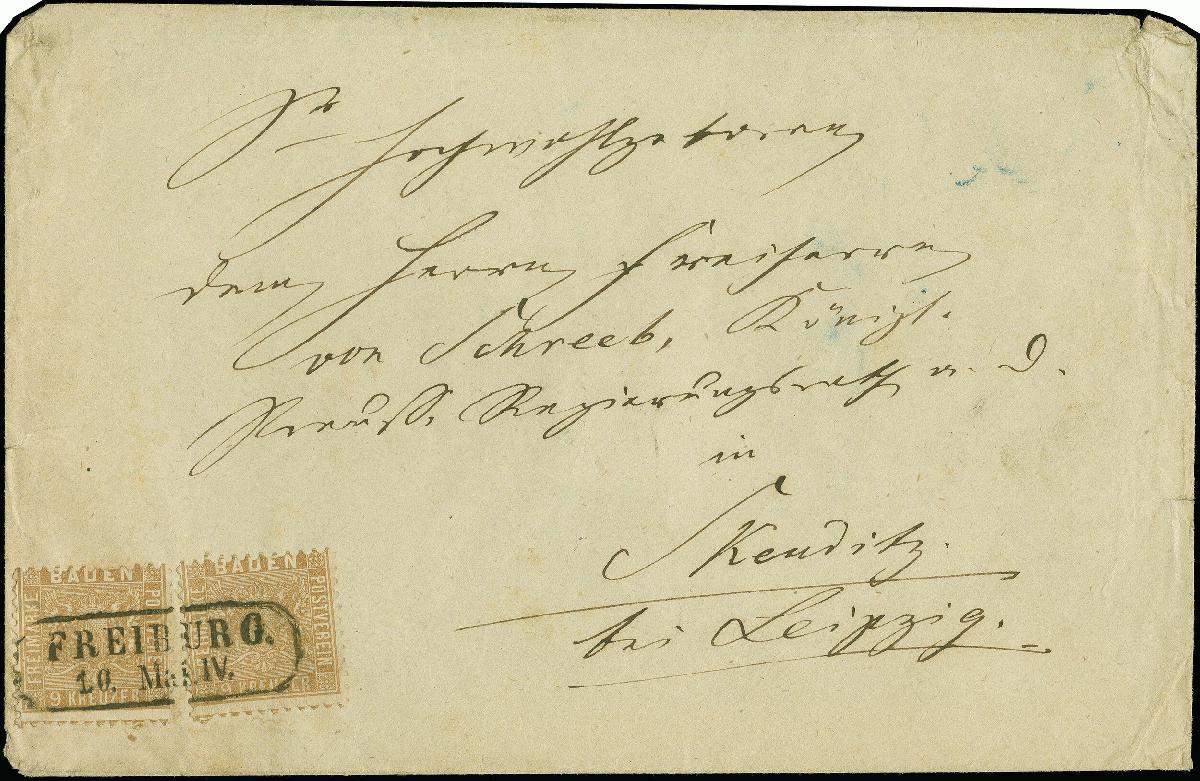 Sr Hochwohlgeboren
dem Herrn Freiherrn
von Schreeb, Königl.
Preuss. Regierungsrath a. D.
in
Skeuditz.
bei Leipzig.
BADEN
FREIMARKE
POSTVEREIN
9 KREUZER
BADEN
POSTVEREIN
KREUZER
FREIBURG.
10. Mai. IV.